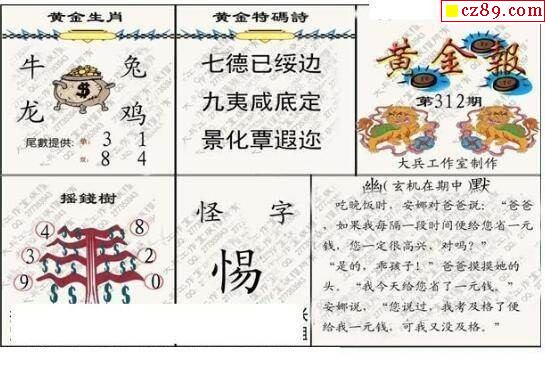 cz89.com
黄金生肖
牛 兔
龙 鸡
尾數提供: 单: 3 1
双: 8 4
黄金特碼詩
七德已绥边
九夷咸底定
景化覃遐迩
黄金報
第312期
大兵工作室制作
摇錢樹
4 8
3 2
9 0
怪 字
惕
幽(玄机在期中)默
吃晚饭时，安娜对爸爸说：“爸爸
，如果我每隔一段时间便给您省一元
钱，您一定很高兴，对吗？”
“是的，乖孩子！”爸爸摸摸她的
头。“我今天给您省了一元钱。”
安娜说，“您说过，我考及格了便
给我一元钱，可我又没及格。”